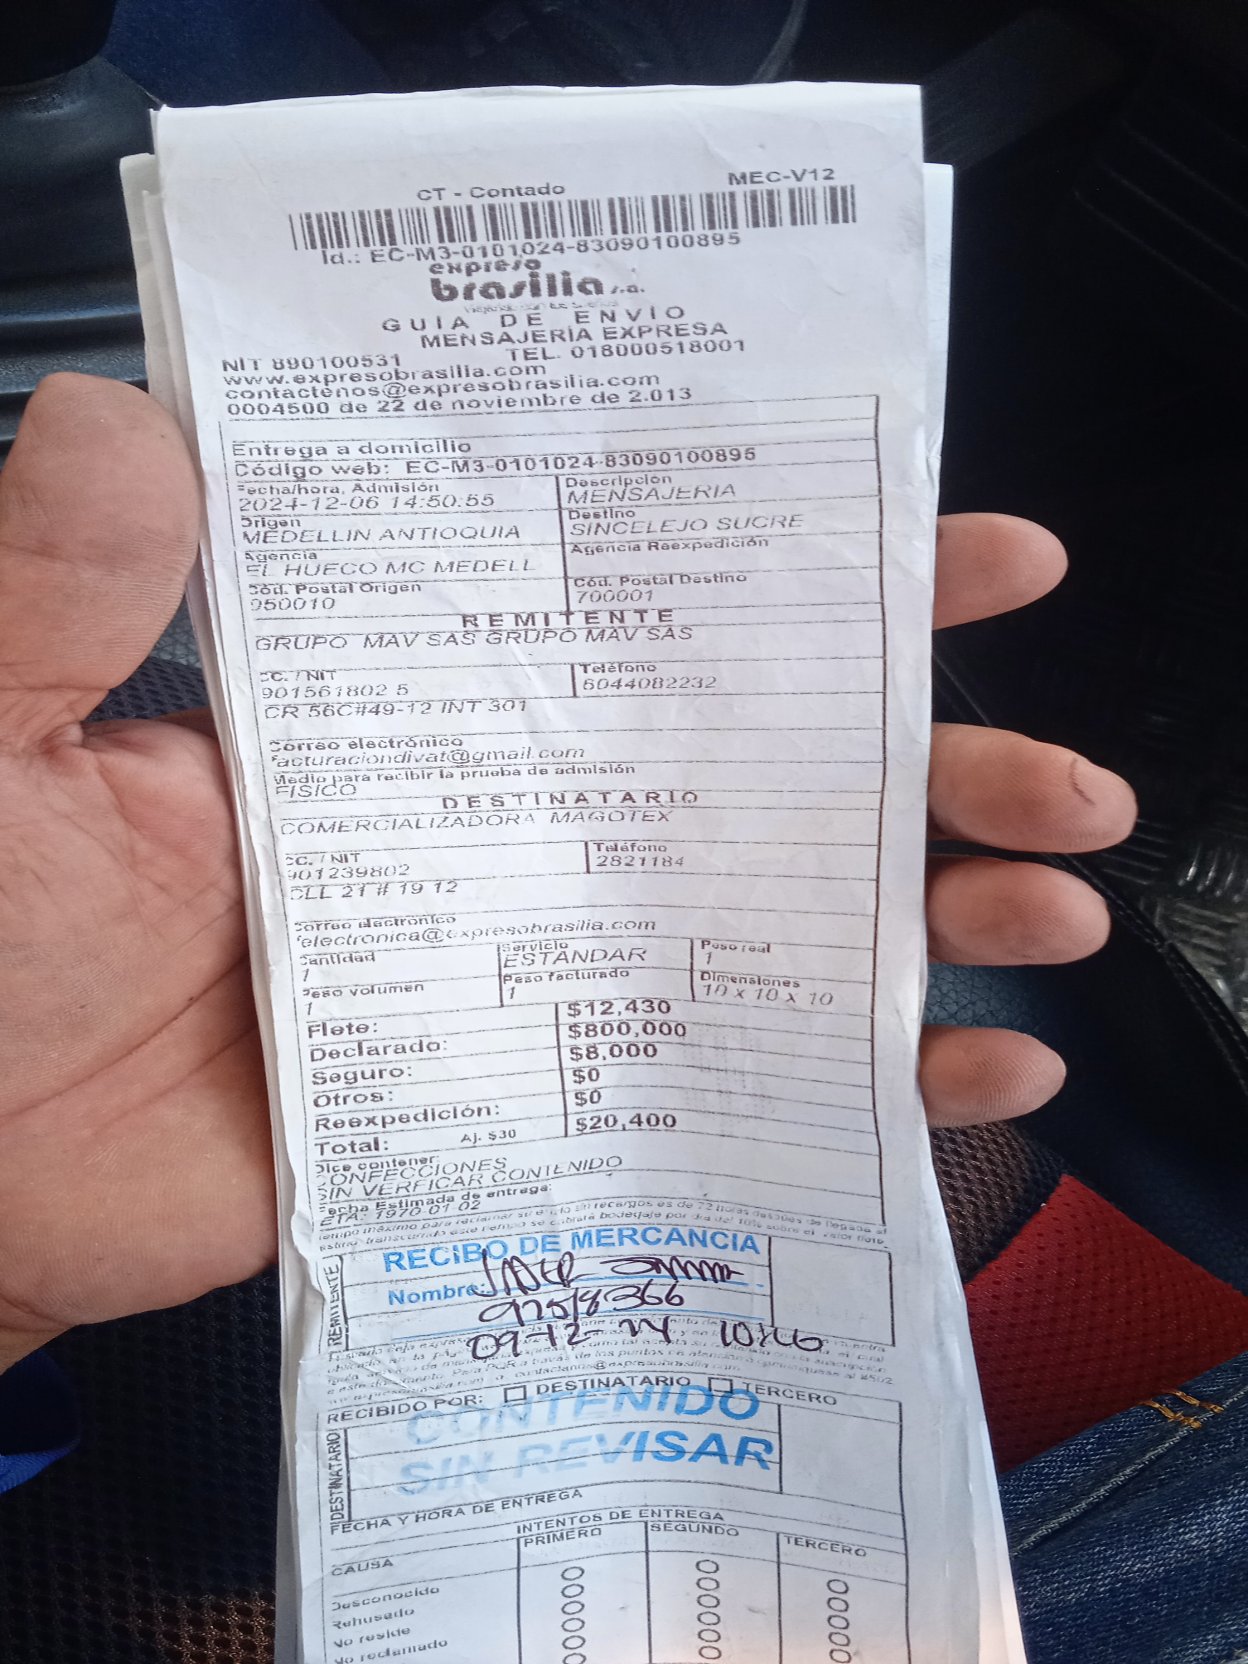 CT - Contado
MEC-V12
Id.: EC-M3-0101024-83090100895
expreso
brasilia s.a.
GUIA DE ENVIO
MENSAJERIA EXPRESA
NIT 890100531 TEL. 018000518001
www.expresobrasilia.com
contactenos@expresobrasilia.com
0004500 de 22 de noviembre de 2.013
Entrega a domicilio
Código web: EC-M3-0101024-83090100895
Fecha/hora, Admisión Descripción
2024-12-06 14:50:55 MENSAJERIA
Origen Destino
MEDELLIN ANTIOQUIA SINCELEJO SUCRE
Agencia Agencia Reexpedición
EL HUECO MC MEDELL
Cód. Postal Origen Cód. Postal Destino
050010 700001
REMITENTE
GRUPO MAV SAS GRUPO MAV SAS
CC. / NIT Teléfono
901561802 5 6044082232
CR 56C#49-12 INT 301
Correo electrónico
facturaciondivat@gmail.com
Medio para recibir la prueba de admisión
FISICO
DESTINATARIO
COMERCIALIZADORA MAGOTEX
CC. / NIT Teléfono
901239802 2821184
CLL 21 # 19 12
Correo electrónico
felectronica@expresobrasilia.com
Cantidad Servicio Peso real
1 ESTANDAR 1
Peso volumen Peso facturado Dimensiones
1 1 10 x 10 x 10
Flete: $12,430
Declarado: $800,000
Seguro: $8,000
Otros: $0
Reexpedición: $0
Total: Aj. $30 $20,400
Dice contener:
CONFECCIONES
SIN VERFICAR CONTENIDO
Fecha Estimada de entrega:
ETA: 1970-01-02
REMITENTE
RECIBO DE MERCANCIA
Nombre:
RECIBIDO POR: DESTINATARIO TERCERO
DESTINATARIO
CONTENIDO
SIN REVISAR
FECHA Y HORA DE ENTREGA
INTENTOS DE ENTREGA
CAUSA PRIMERO SEGUNDO TERCERO
Desconocido
Rehusado
No reside
No reclamado